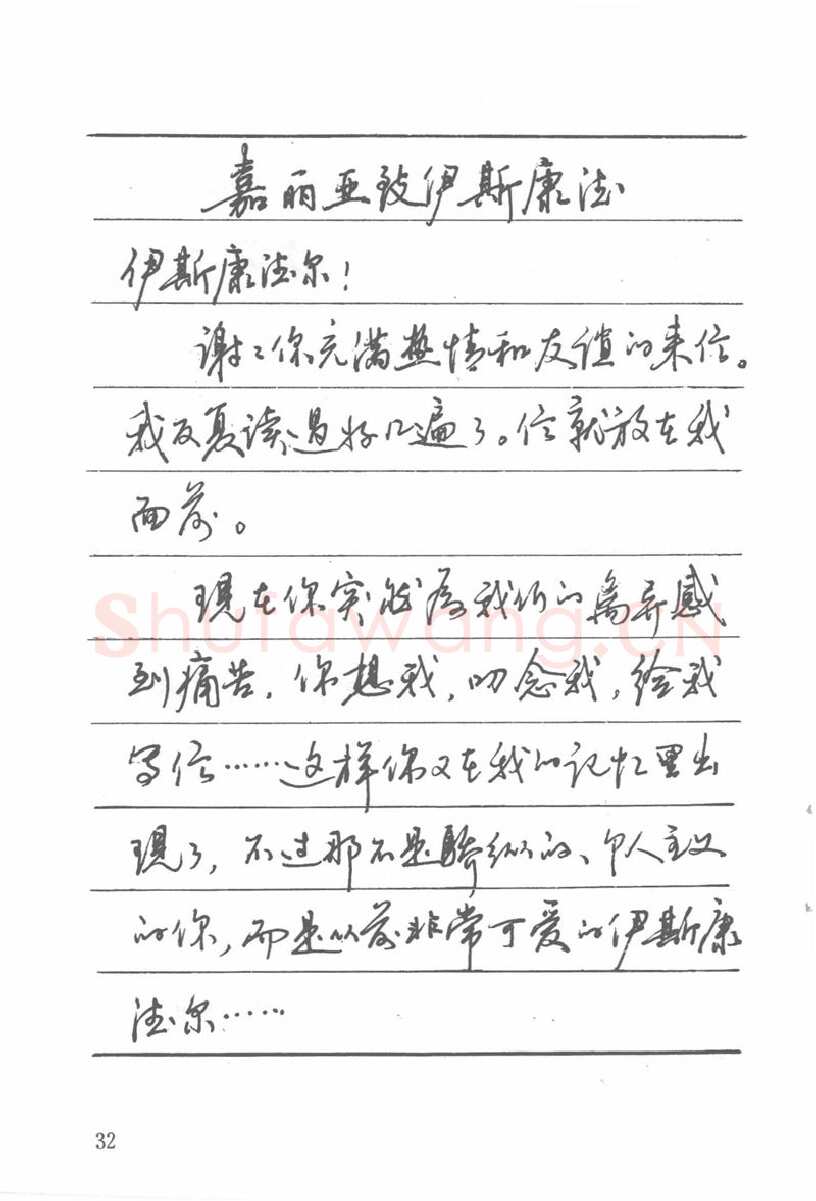 嘉丽亚致伊斯康法
伊斯康法尔！
谢谢你充满热情和友谊的来信。
我反复读过好几遍了。信就放在我
面前。
现在你突然为我们的离弃感
到痛苦，你想我，叨念我，给我
写信……这样你又在我的记忆里出
现了，不过那不是骄纵的、个人主义
的你，而是以前非常可爱的伊斯康
法尔……
Shufawang.CN
32